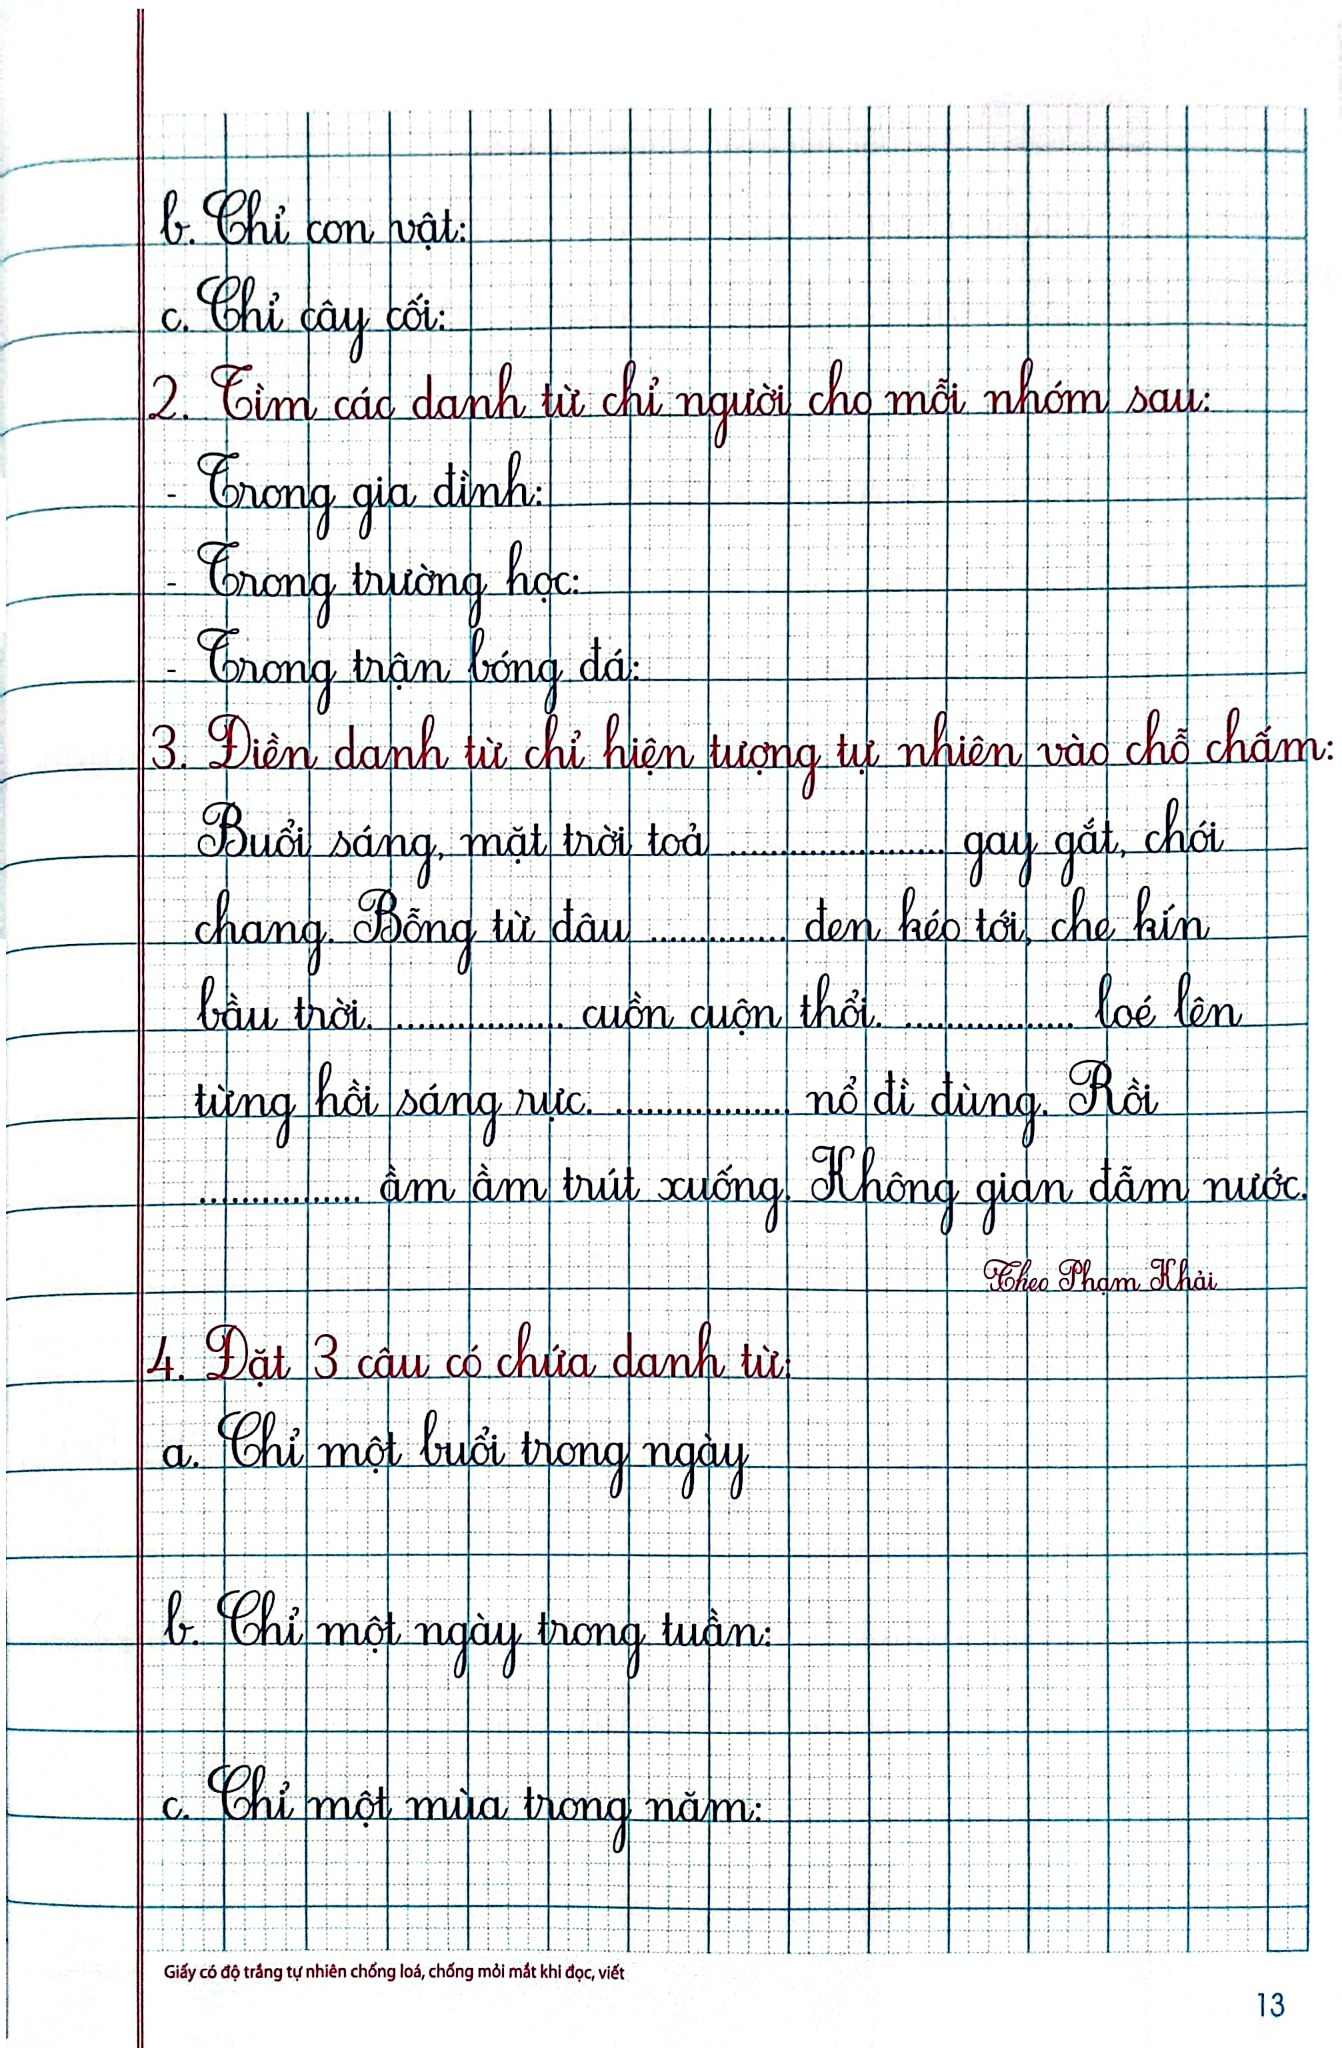 b. Chỉ con vật:
c. Chỉ cây cối:
2. Tìm các danh từ chỉ người cho mỗi nhóm sau:
- Trong gia đình:
- Trong trường học:
- Trong trận bóng đá:
3. Điền danh từ chỉ hiện tượng tự nhiên vào chỗ chấm:
Buổi sáng, mặt trời toả ........................ gay gắt, chói
chang. Bỗng từ đâu ............... đen kéo tới, che kín
bầu trời. ................... cuồn cuộn thổi. ................... loé lên
từng hồi sáng rực. ................... nổ đì đùng. Rồi
.................. ầm ầm trút xuống. Không gian đẫm nước.
Theo Phạm Khải
4. Đặt 3 câu có chứa danh từ:
a. Chỉ một buổi trong ngày
b. Chỉ một ngày trong tuần:
c. Chỉ một mùa trong năm:
Giấy có độ trắng tự nhiên chống loá, chống mỏi mắt khi đọc, viết
13